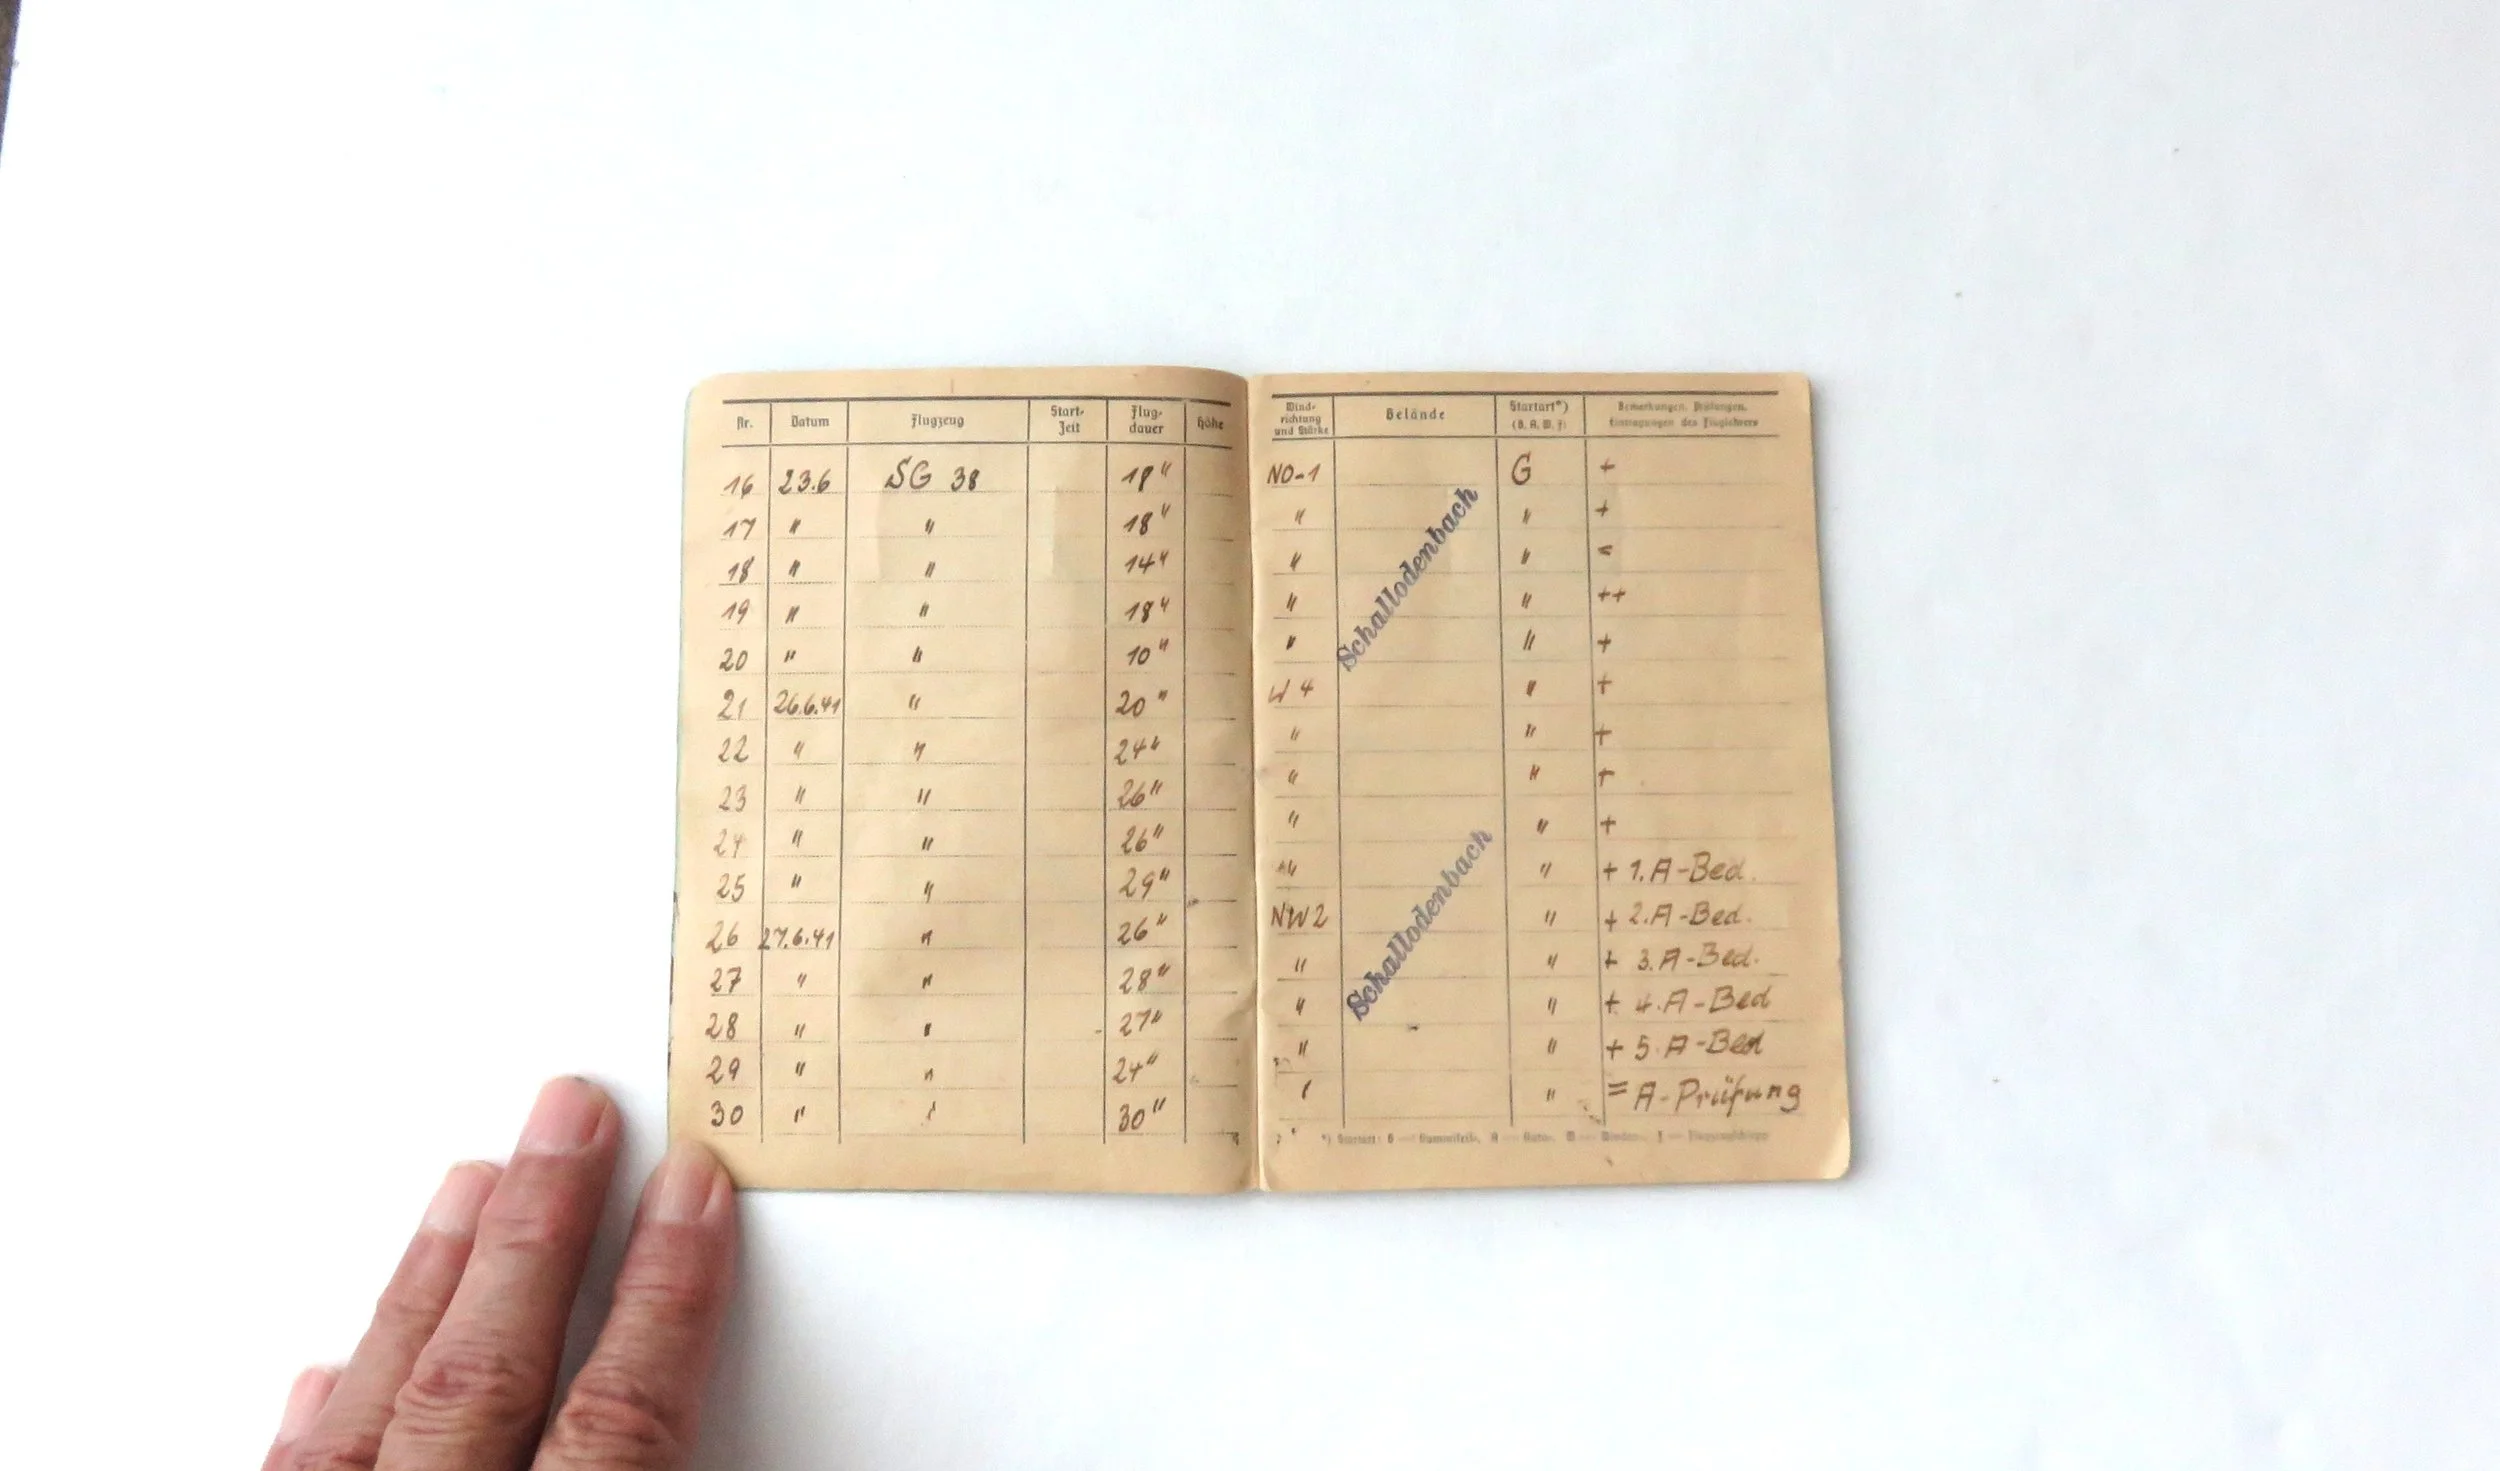 Nr. Datum Flugzeug Start-Zeit Flug-dauer Höhe
16 23.6 SG 38 18"
17 " " 18"
18 " " 14"
19 " " 18"
20 " " 10"
21 26.6.41 " 20"
22 " " 24"
23 " " 26"
24 " " 26"
25 " " 29"
26 27.6.41 " 26"
27 " " 28"
28 " " 27"
29 " " 24"
30 " " 30"
Wind-richtung und Stärke Gelände Startart*) (G, A, W, F) Bemerkungen, Prüfungen, Eintragungen des Fluglehrers
NO-1 G +
" " +
" " =
" " ++
" " +
Schallodenbach
W 4 " +
" " +
" " +
" " +
" " + 1. A-Bed.
NW2 " + 2. A-Bed.
" " + 3. A-Bed.
" " + 4. A-Bed
" " + 5. A-Bed
" " = A-Prüfung
Schallodenbach
*) Startart: G — Gummiseil-, A — Auto-, W — Winden-, F — Flugzeugschlepp